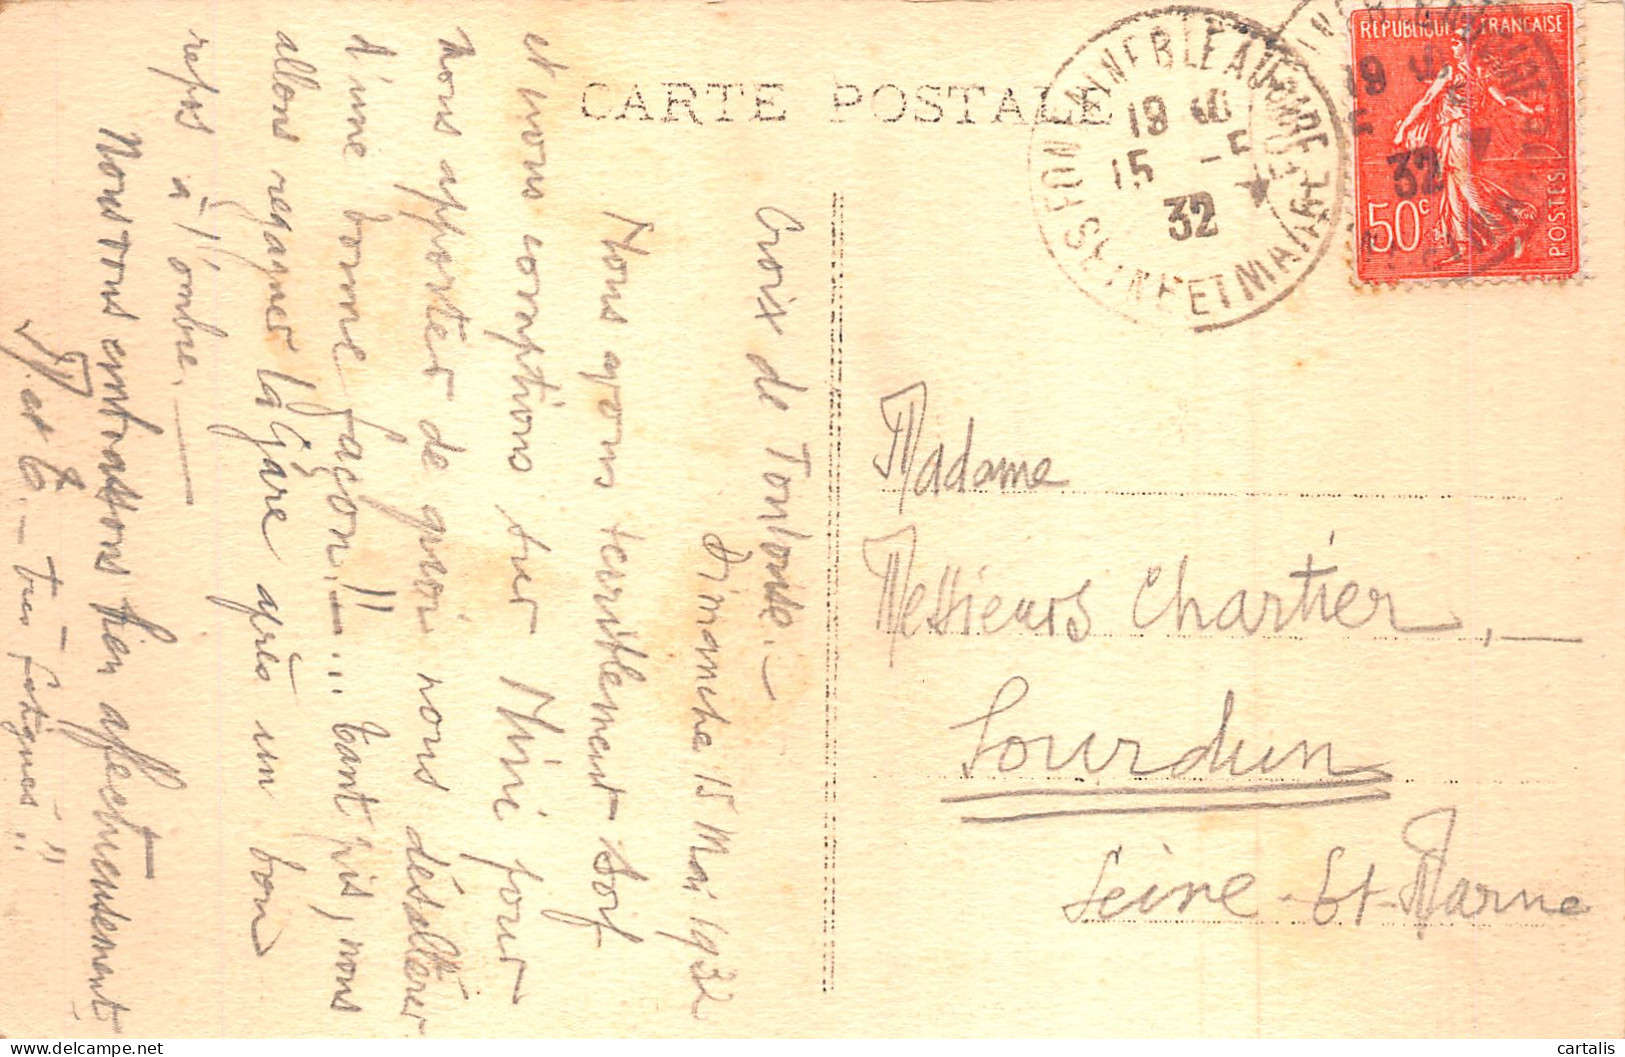 CARTE POSTALE
Croix de Toulouse. —
Dimanche 15 Mai 1932
Nous avons terriblement soif
et nous comptions sur Mimi pour
nous apporter de quoi nous désaltérer
d'une bonne façon !! — ... tant pis, nous
allons regagner la gare après un bon
repos à l'ombre. —
Nous vous embrassons bien affectueusement
et — très fatigués"..
FONTAINEBLEAU
SEINE ET MARNE
15 - 5
32
REPUBLIQUE FRANÇAISE
50c
POSTES
32
Madame
Messieurs Chartier, —
Sourdun
Seine-Et-Marne
cartalis